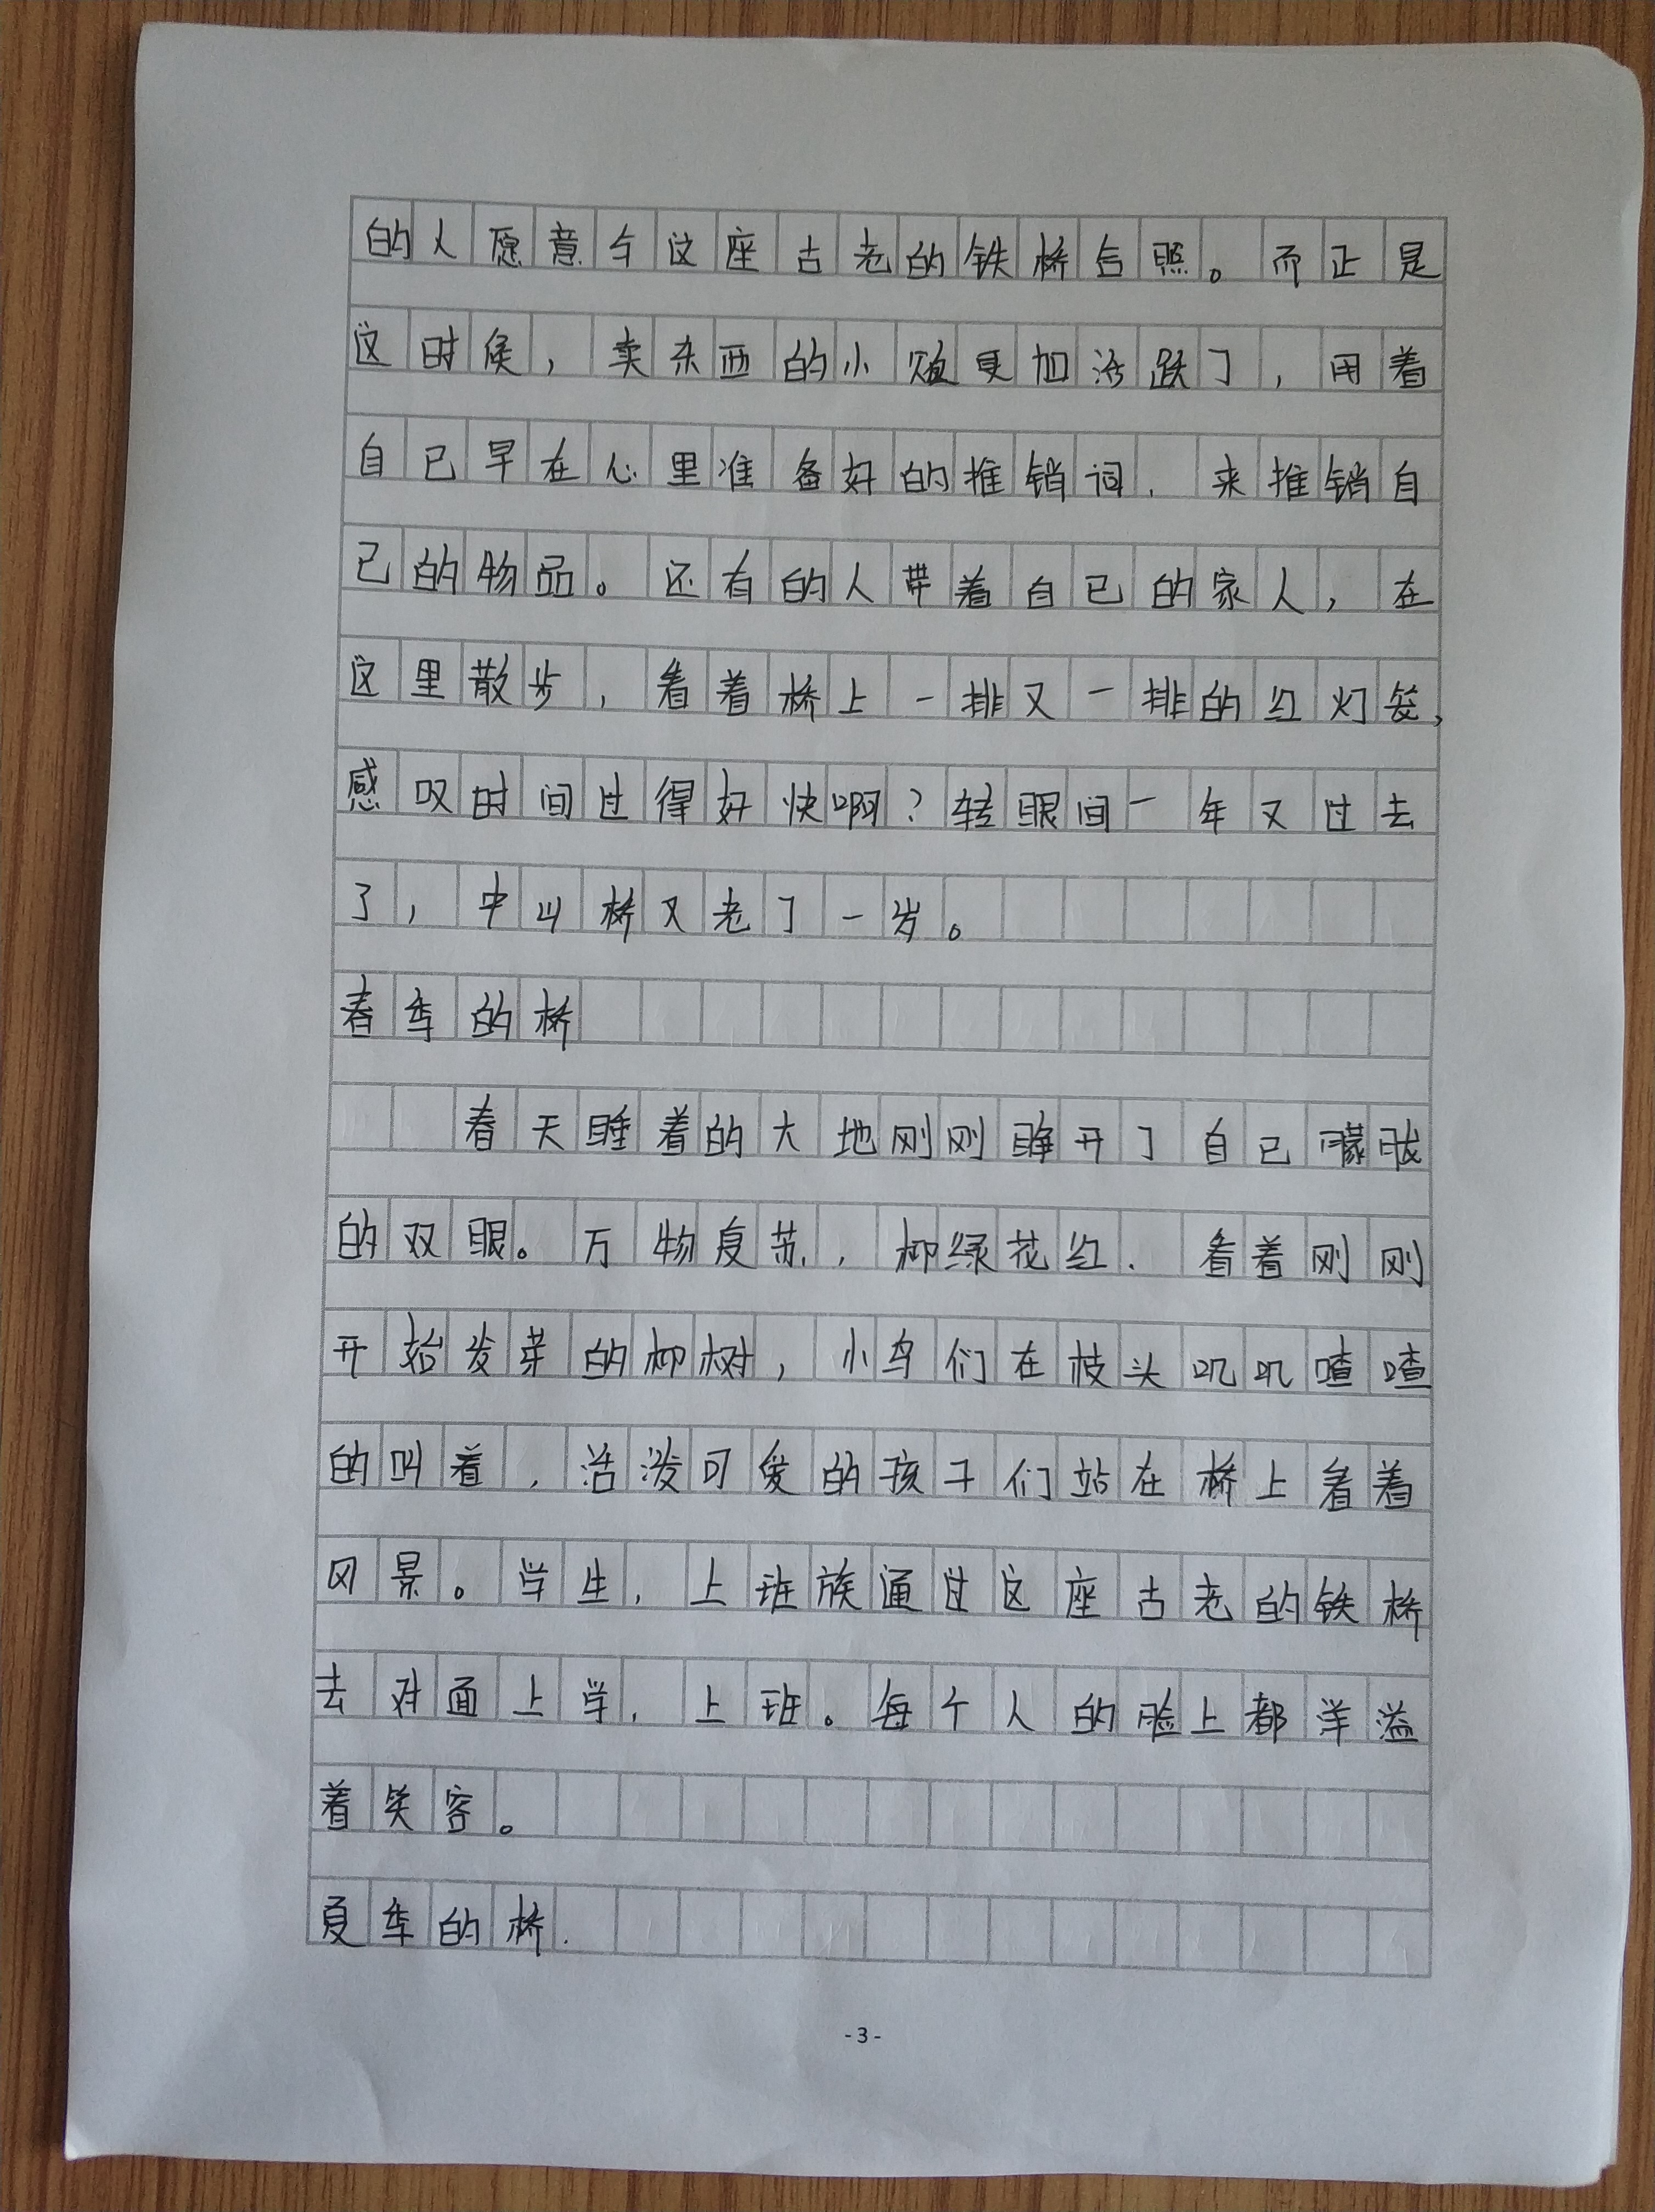 的人愿意与这座古老的铁桥合照。而正是
这时候，卖东西的小贩更加活跃了，用着
自己早在心里准备好的推销词，来推销自
己的物品。还有的人带着自己的家人，在
这里散步，看着桥上一排又一排的红灯笼，
感叹时间过得好快啊？转眼间一年又过去
了，中山桥又老了一岁。
春季的桥
春天睡着的大地刚刚睁开了自己朦胧
的双眼。万物复苏，柳绿花红，看着刚刚
开始发芽的柳树，小鸟们在枝头叽叽喳喳
的叫着，活泼可爱的孩子们站在桥上看着
风景。学生，上班族通过这座古老的铁桥
去对面上学，上班。每个人的脸上都洋溢
着笑容。
夏季的桥.
-3-